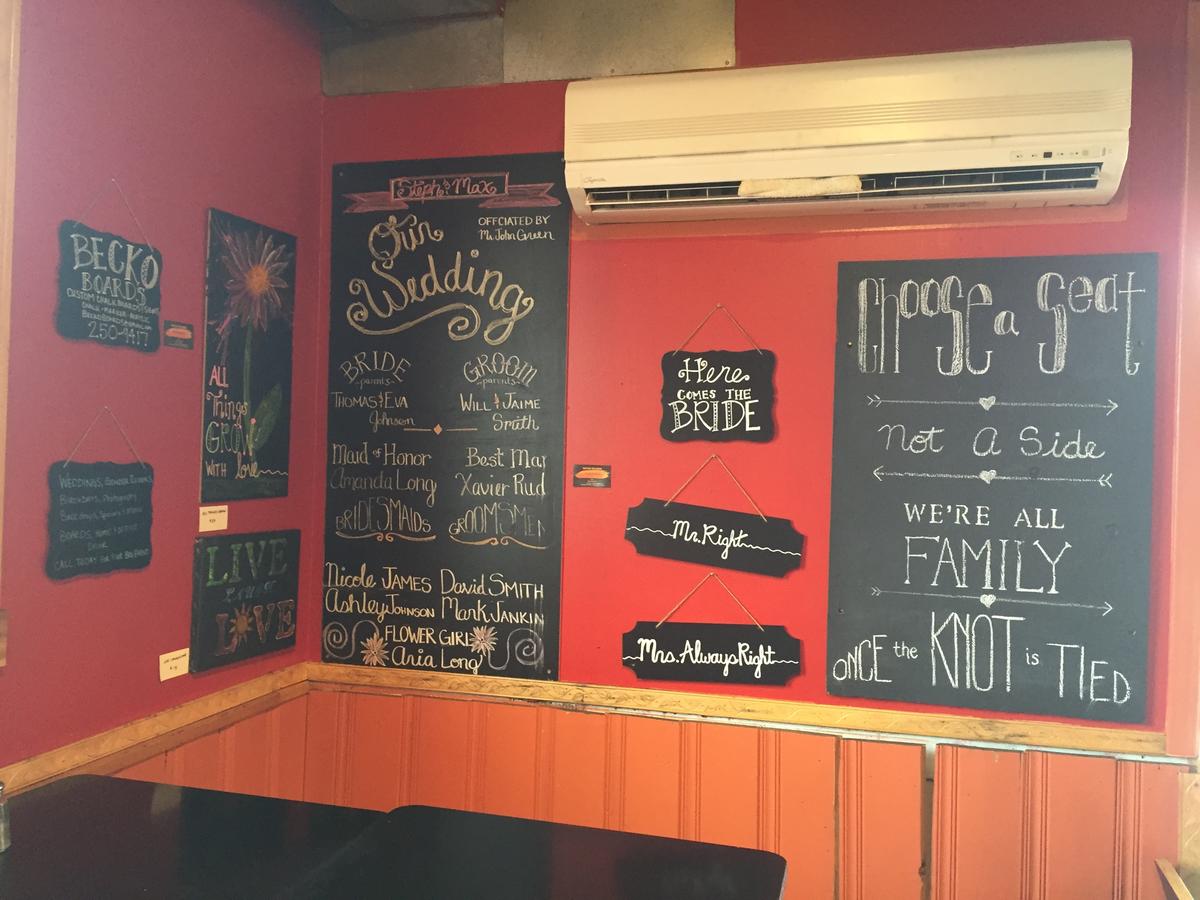 BECKO
BOARDS
CUSTOM CHALKBOARD SIGNS
CHALK • MARKER • ACRYLIC
BECKOBOARDS@GMAIL.COM
250-9417
WEDDINGS,
Birthdays, Photography
BOARDS, HOME & OFFICE
DECOR
CALL TODAY FOR YOUR BIG EVENT
ALL
Things
GROW
WITH love
LIVE
LOVE
Steph & Max
Our
Wedding
OFFCIATED BY
Mr. John Green
BRIDE
parents
THOMAS & EVA
Johnson
GROOM
parents
WILL & JAIME
Smith
Maid of Honor
Amanda Long
Best Mar
Xavier Rud
BRIDESMAIDS
GROOMSMEN
Nicole JAMES David SMITH
Ashley JOHNSON Mark JANKIN
FLOWER GIRL
Aria Long
Here
COMES THE
BRIDE
Mr. Right
Mrs. Always Right
Choose a Seat
Not A Side
WE'RE ALL
FAMILY
ONCE the KNOT is TIED